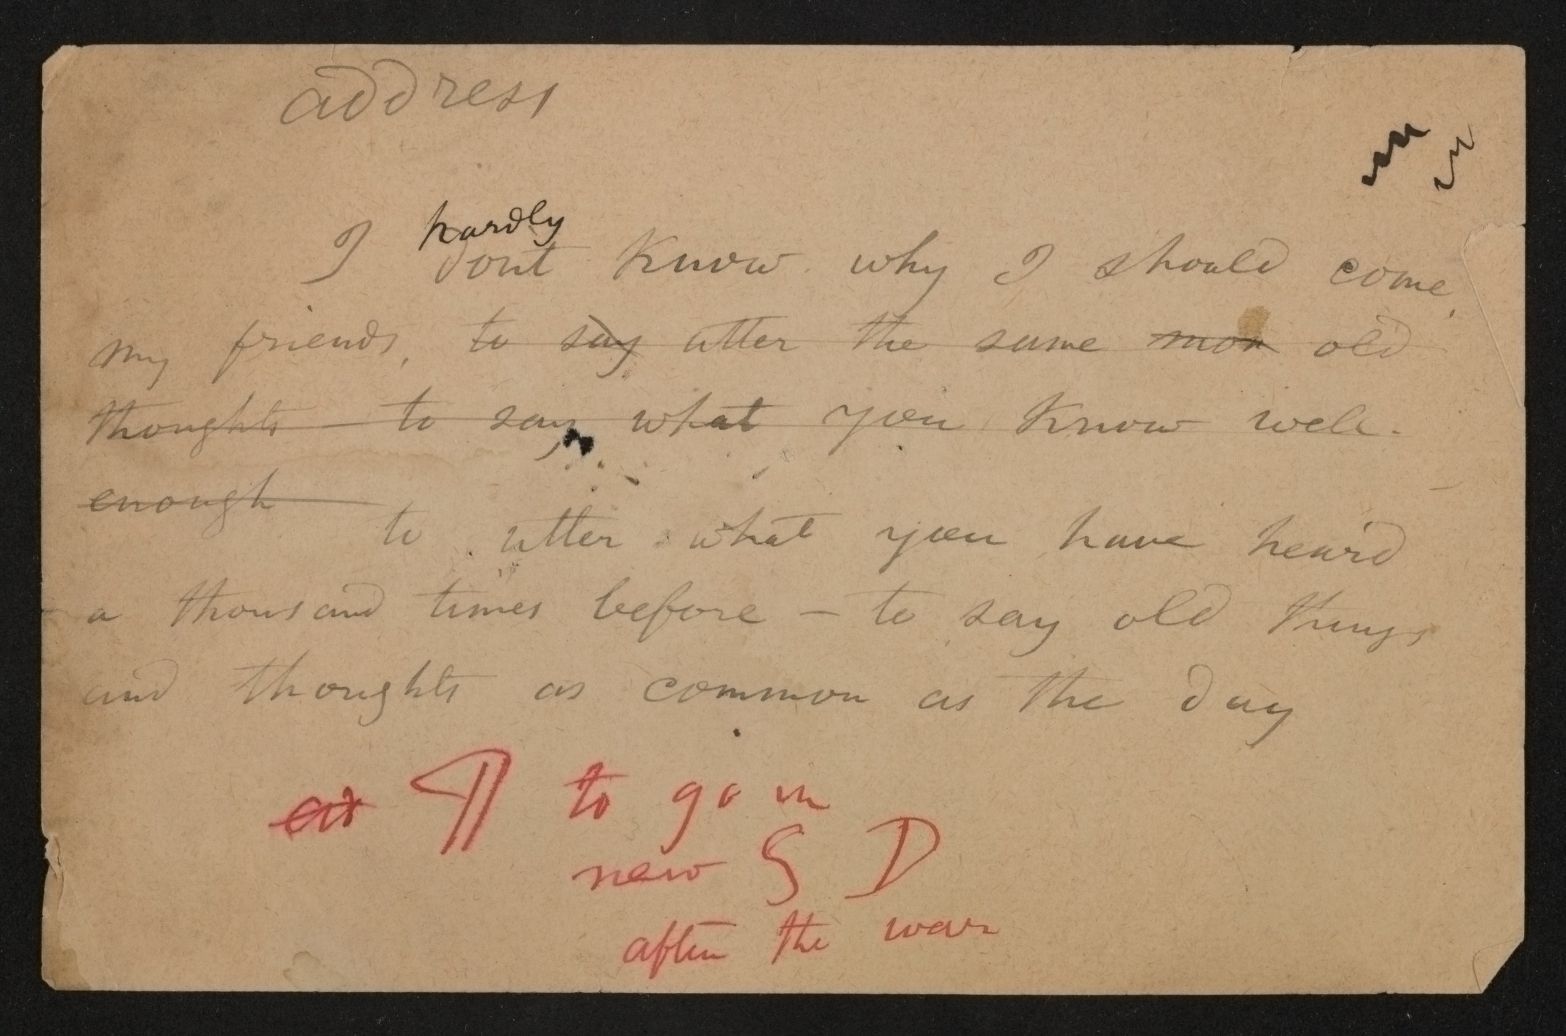 address
hardly
I dont know why I should come,
my friends, to say utter the same mor old
thoughts — to say what you know well
enough
to utter what you have heard
a thousand times before — to say old things
and thoughts as common as the day
¶ to go in
new S D
after the war